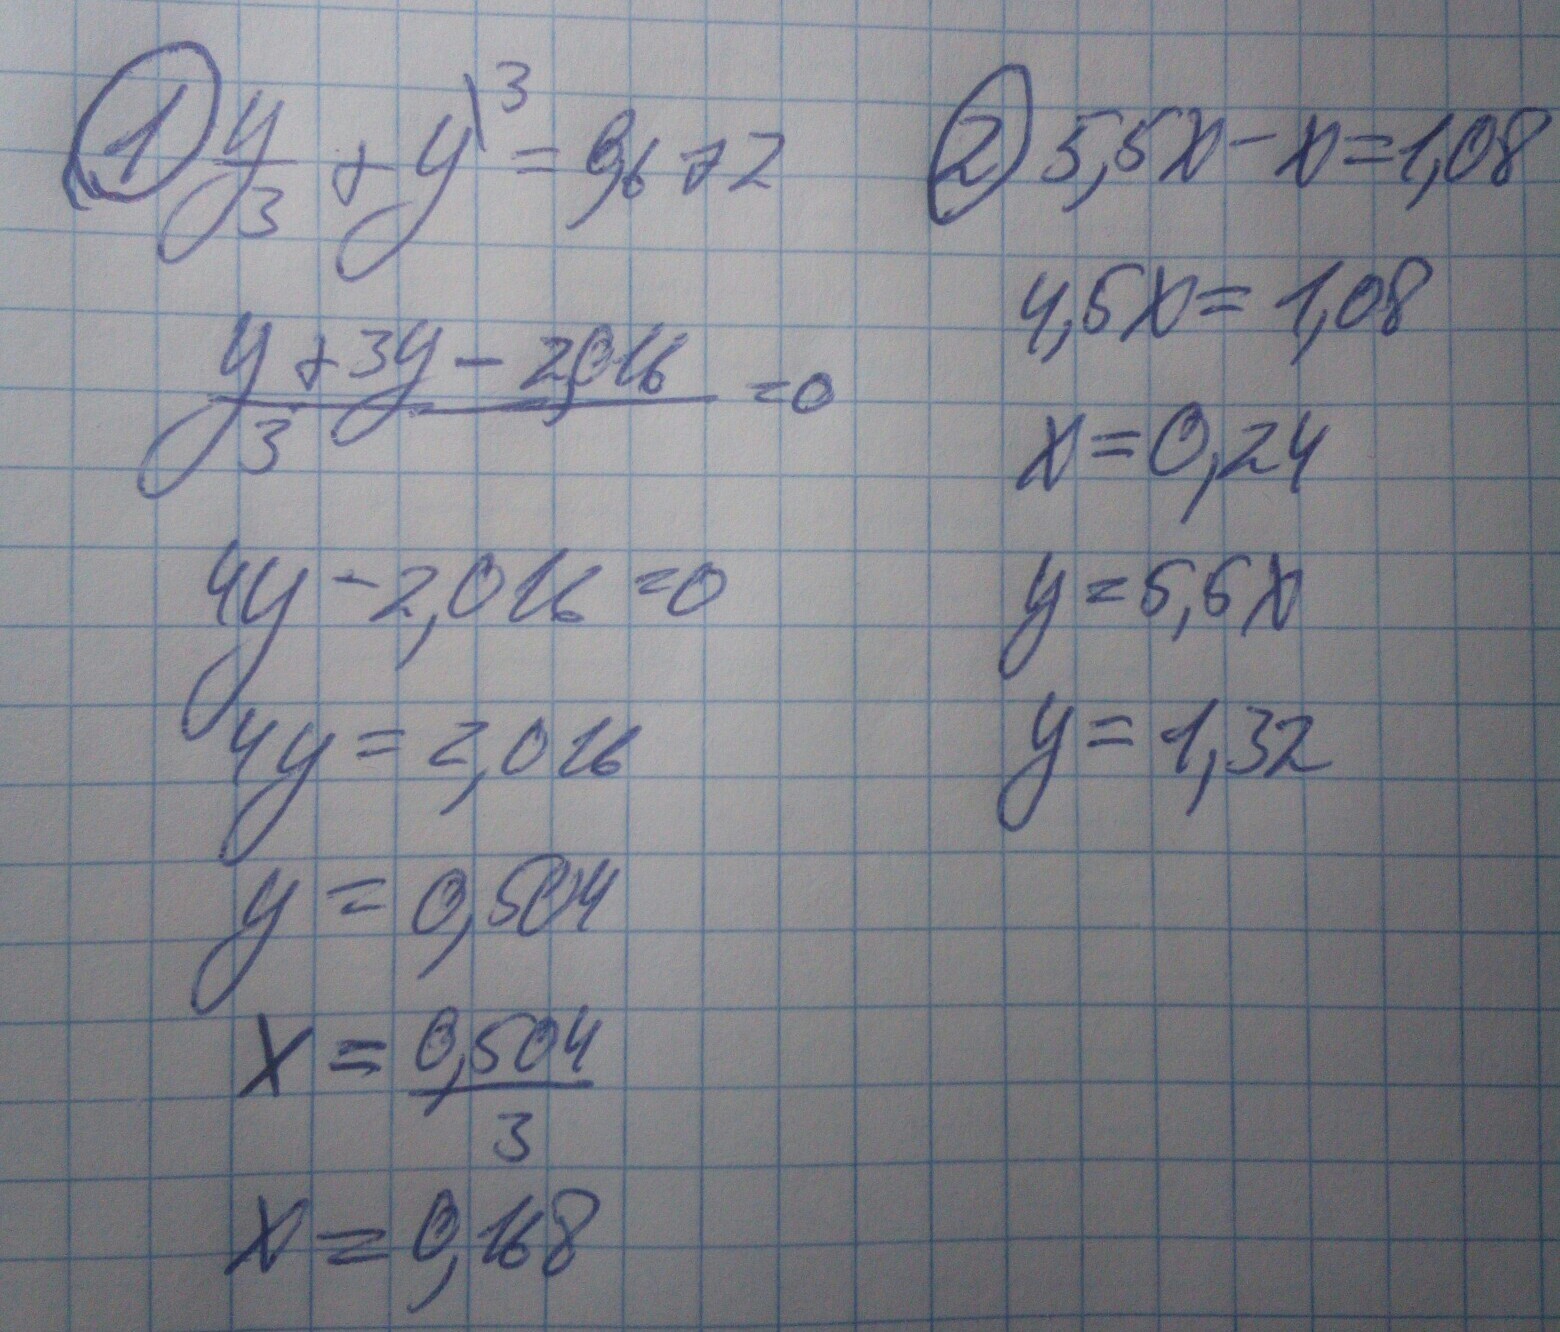 ① y/3 + y\³ = 0,672
(y + 3y - 2,016)/3 = 0
4y - 2,016 = 0
4y = 2,016
y = 0,504
x = 0,504/3
x = 0,168
② 5,5x - x = 1,08
4,5x = 1,08
x = 0,24
y = 5,5x
y = 1,32